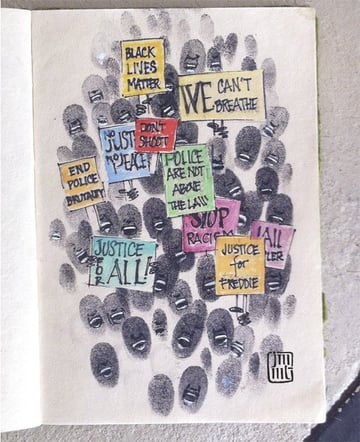 BLACK
LIVES
MATTER
WE CAN'T
BREATHE
DON'T
SHOOT
JUST
NO PEACE
POLICE
ARE NOT
ABOVE
THE LAW
END
POLICE
BRUTALITY
STOP
RACISM
JAIL
LER
JUSTICE
FOR
ALL!
JUSTICE
for
FREDDIE